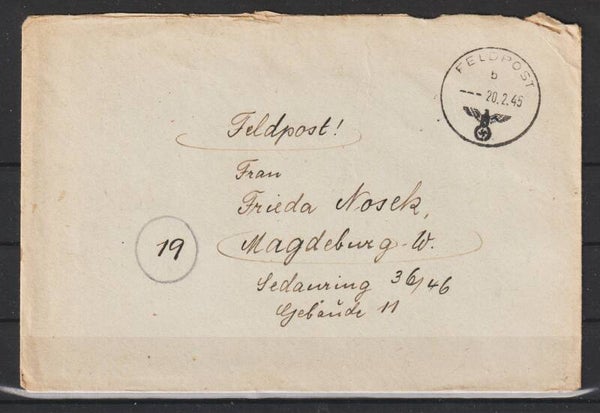 FELDPOST
b
--- 20.2.45
Feldpost!
Frau
Frieda Nosek,
19
Magdeburg-W.
Sedanring 36/46
Gebäude 11